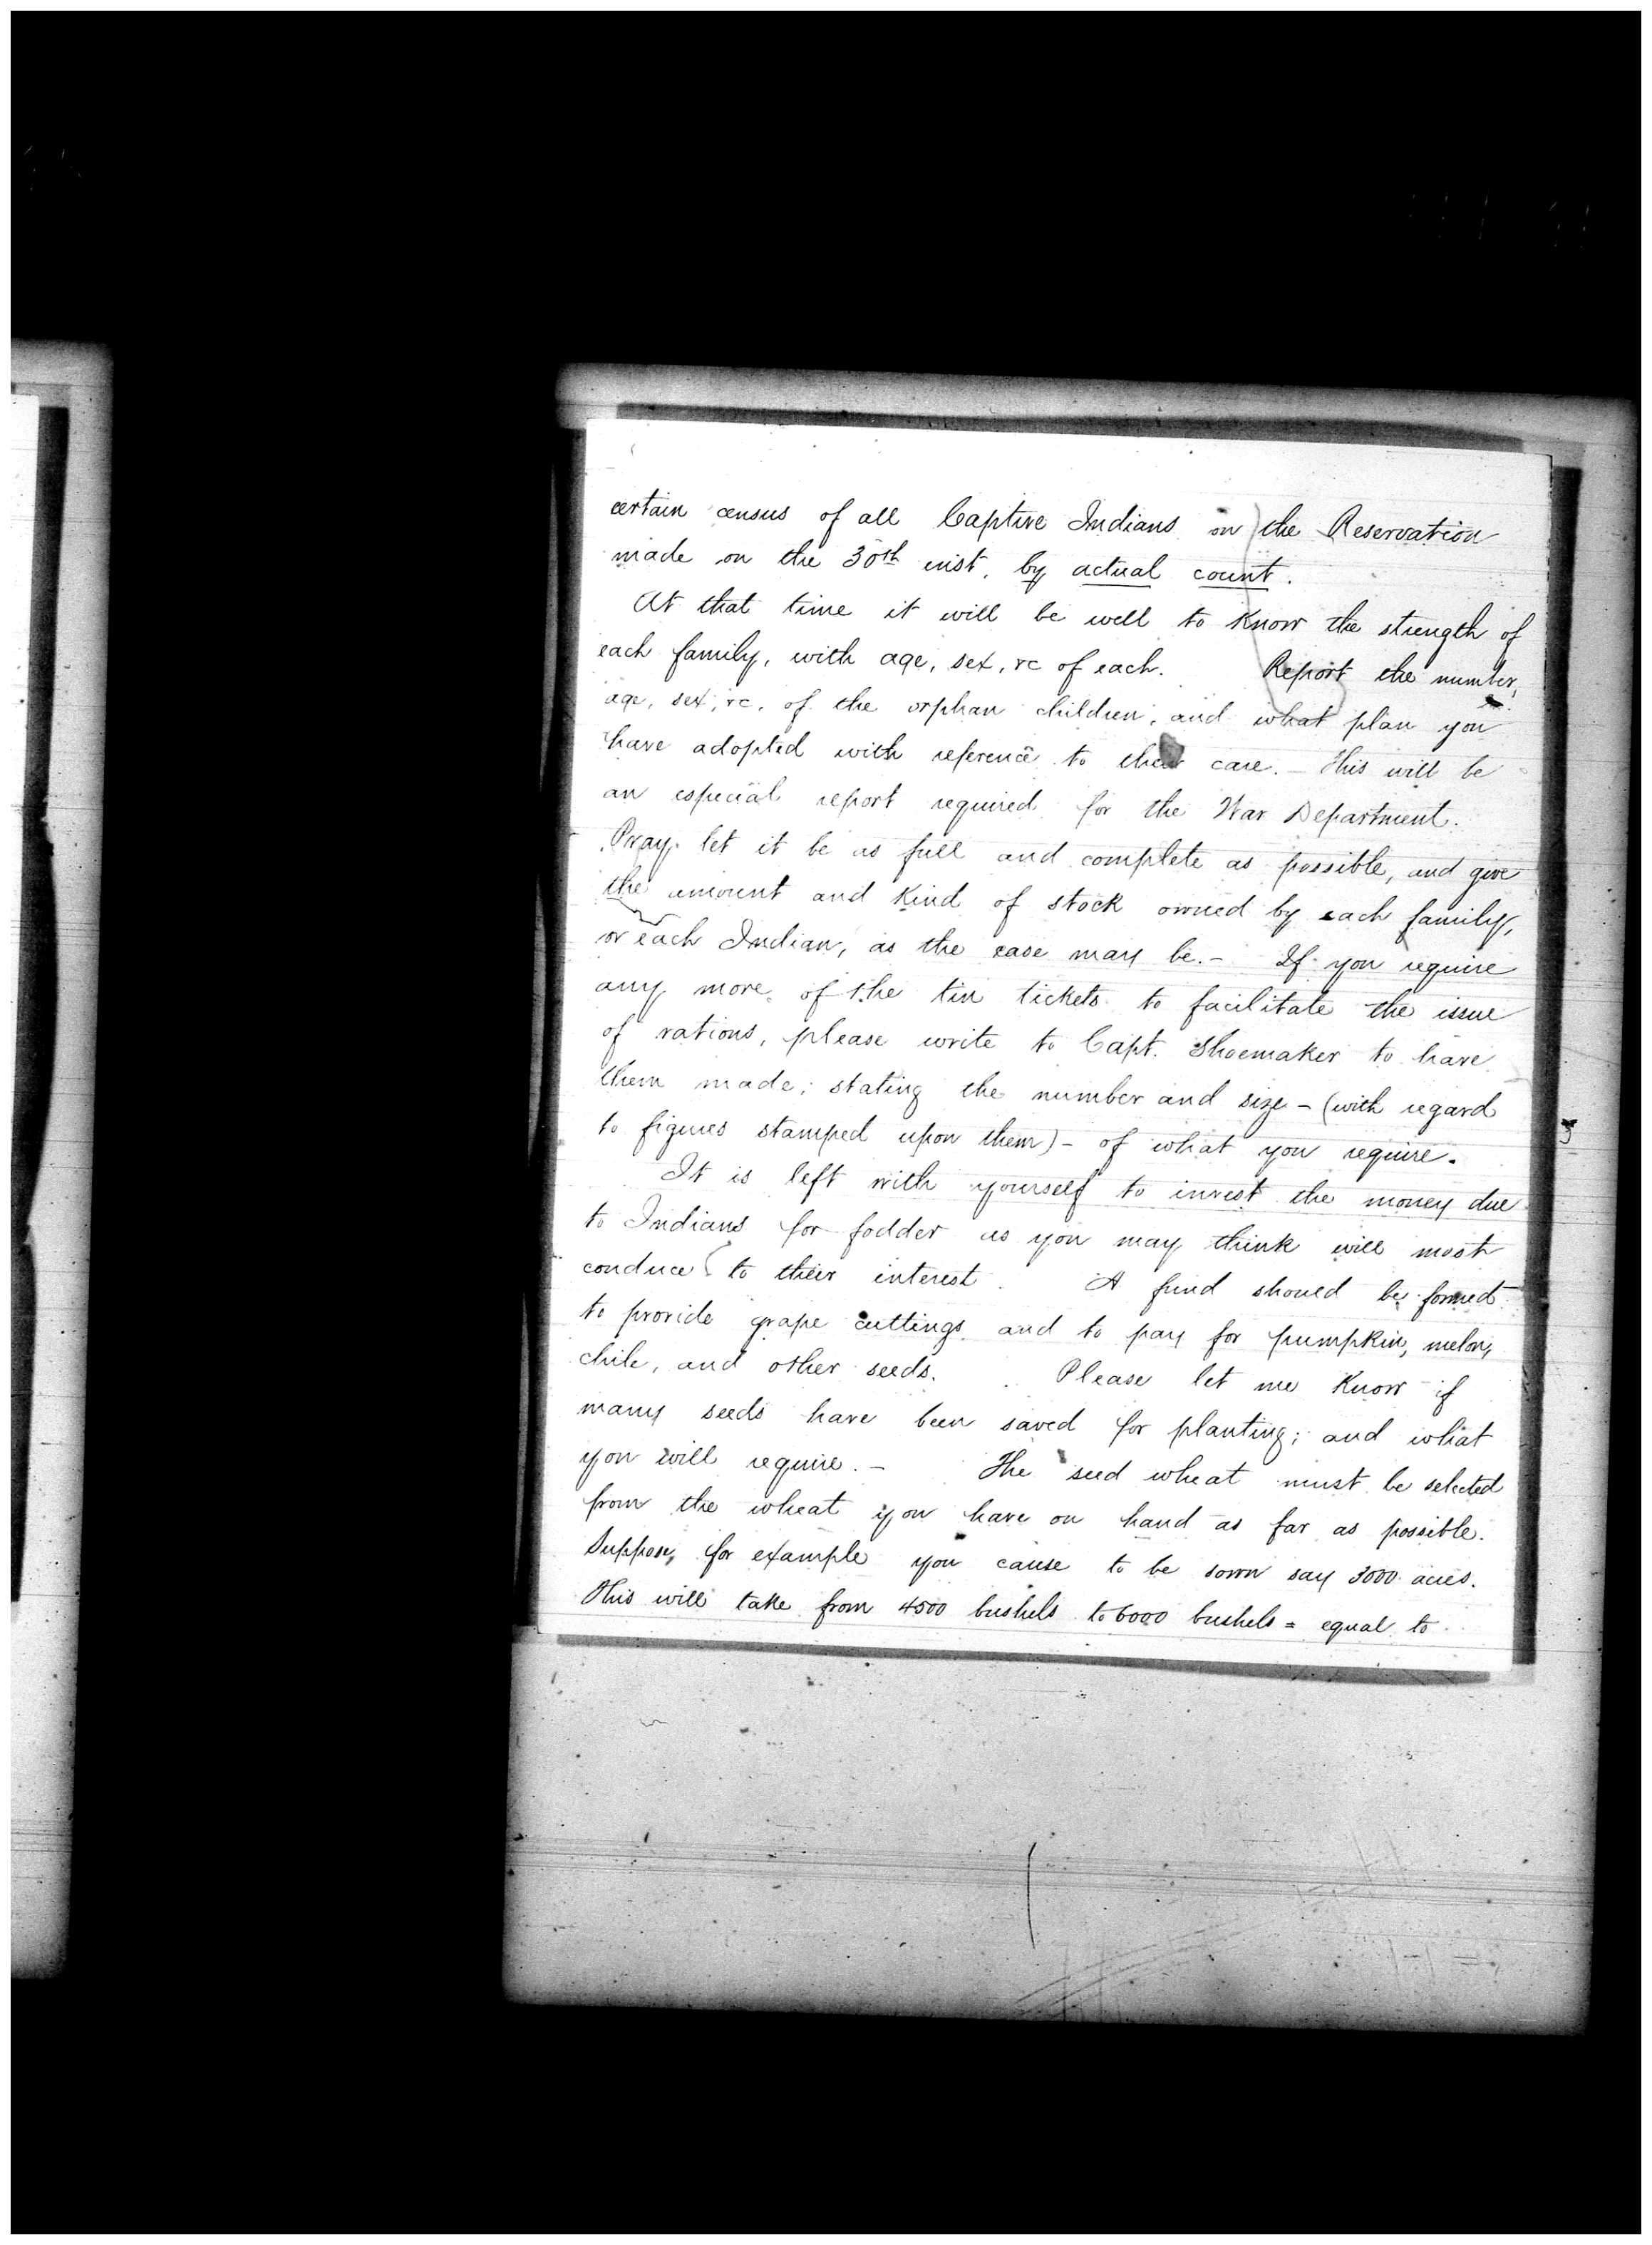 certain census of all Captive Indians on the Reservation
made on the 30th inst. by actual count.
At that time it will be well to know the strength of
each family, with age, sex, &c of each. Report the number,
age, sex, &c. of the orphan children, and what plan you
have adopted with reference to their care. – This will be
an especial report required for the War Department.
Pray let it be as full and complete as possible, and give
the amount and kind of stock owned by each family,
or each Indian, as the case may be. – If you require
any more of the tin tickets to facilitate the issue
of rations, please write to Capt. Shoemaker to have
them made; stating the number and size – (with regard
to figures stamped upon them) – of what you require.
It is left with yourself to invest the money due
to Indians for fodder as you may think will most
conduce to their interest. A fund should be formed
to provide grape cuttings and to pay for pumpkin, melon,
chile, and other seeds. Please let me know if
many seeds have been saved for planting; and what
you will require. – The seed wheat must be selected
from the wheat you have on hand as far as possible.
Suppose, for example you cause to be sown say 3000 acres.
This will take from 4500 bushels to 6000 bushels = equal to